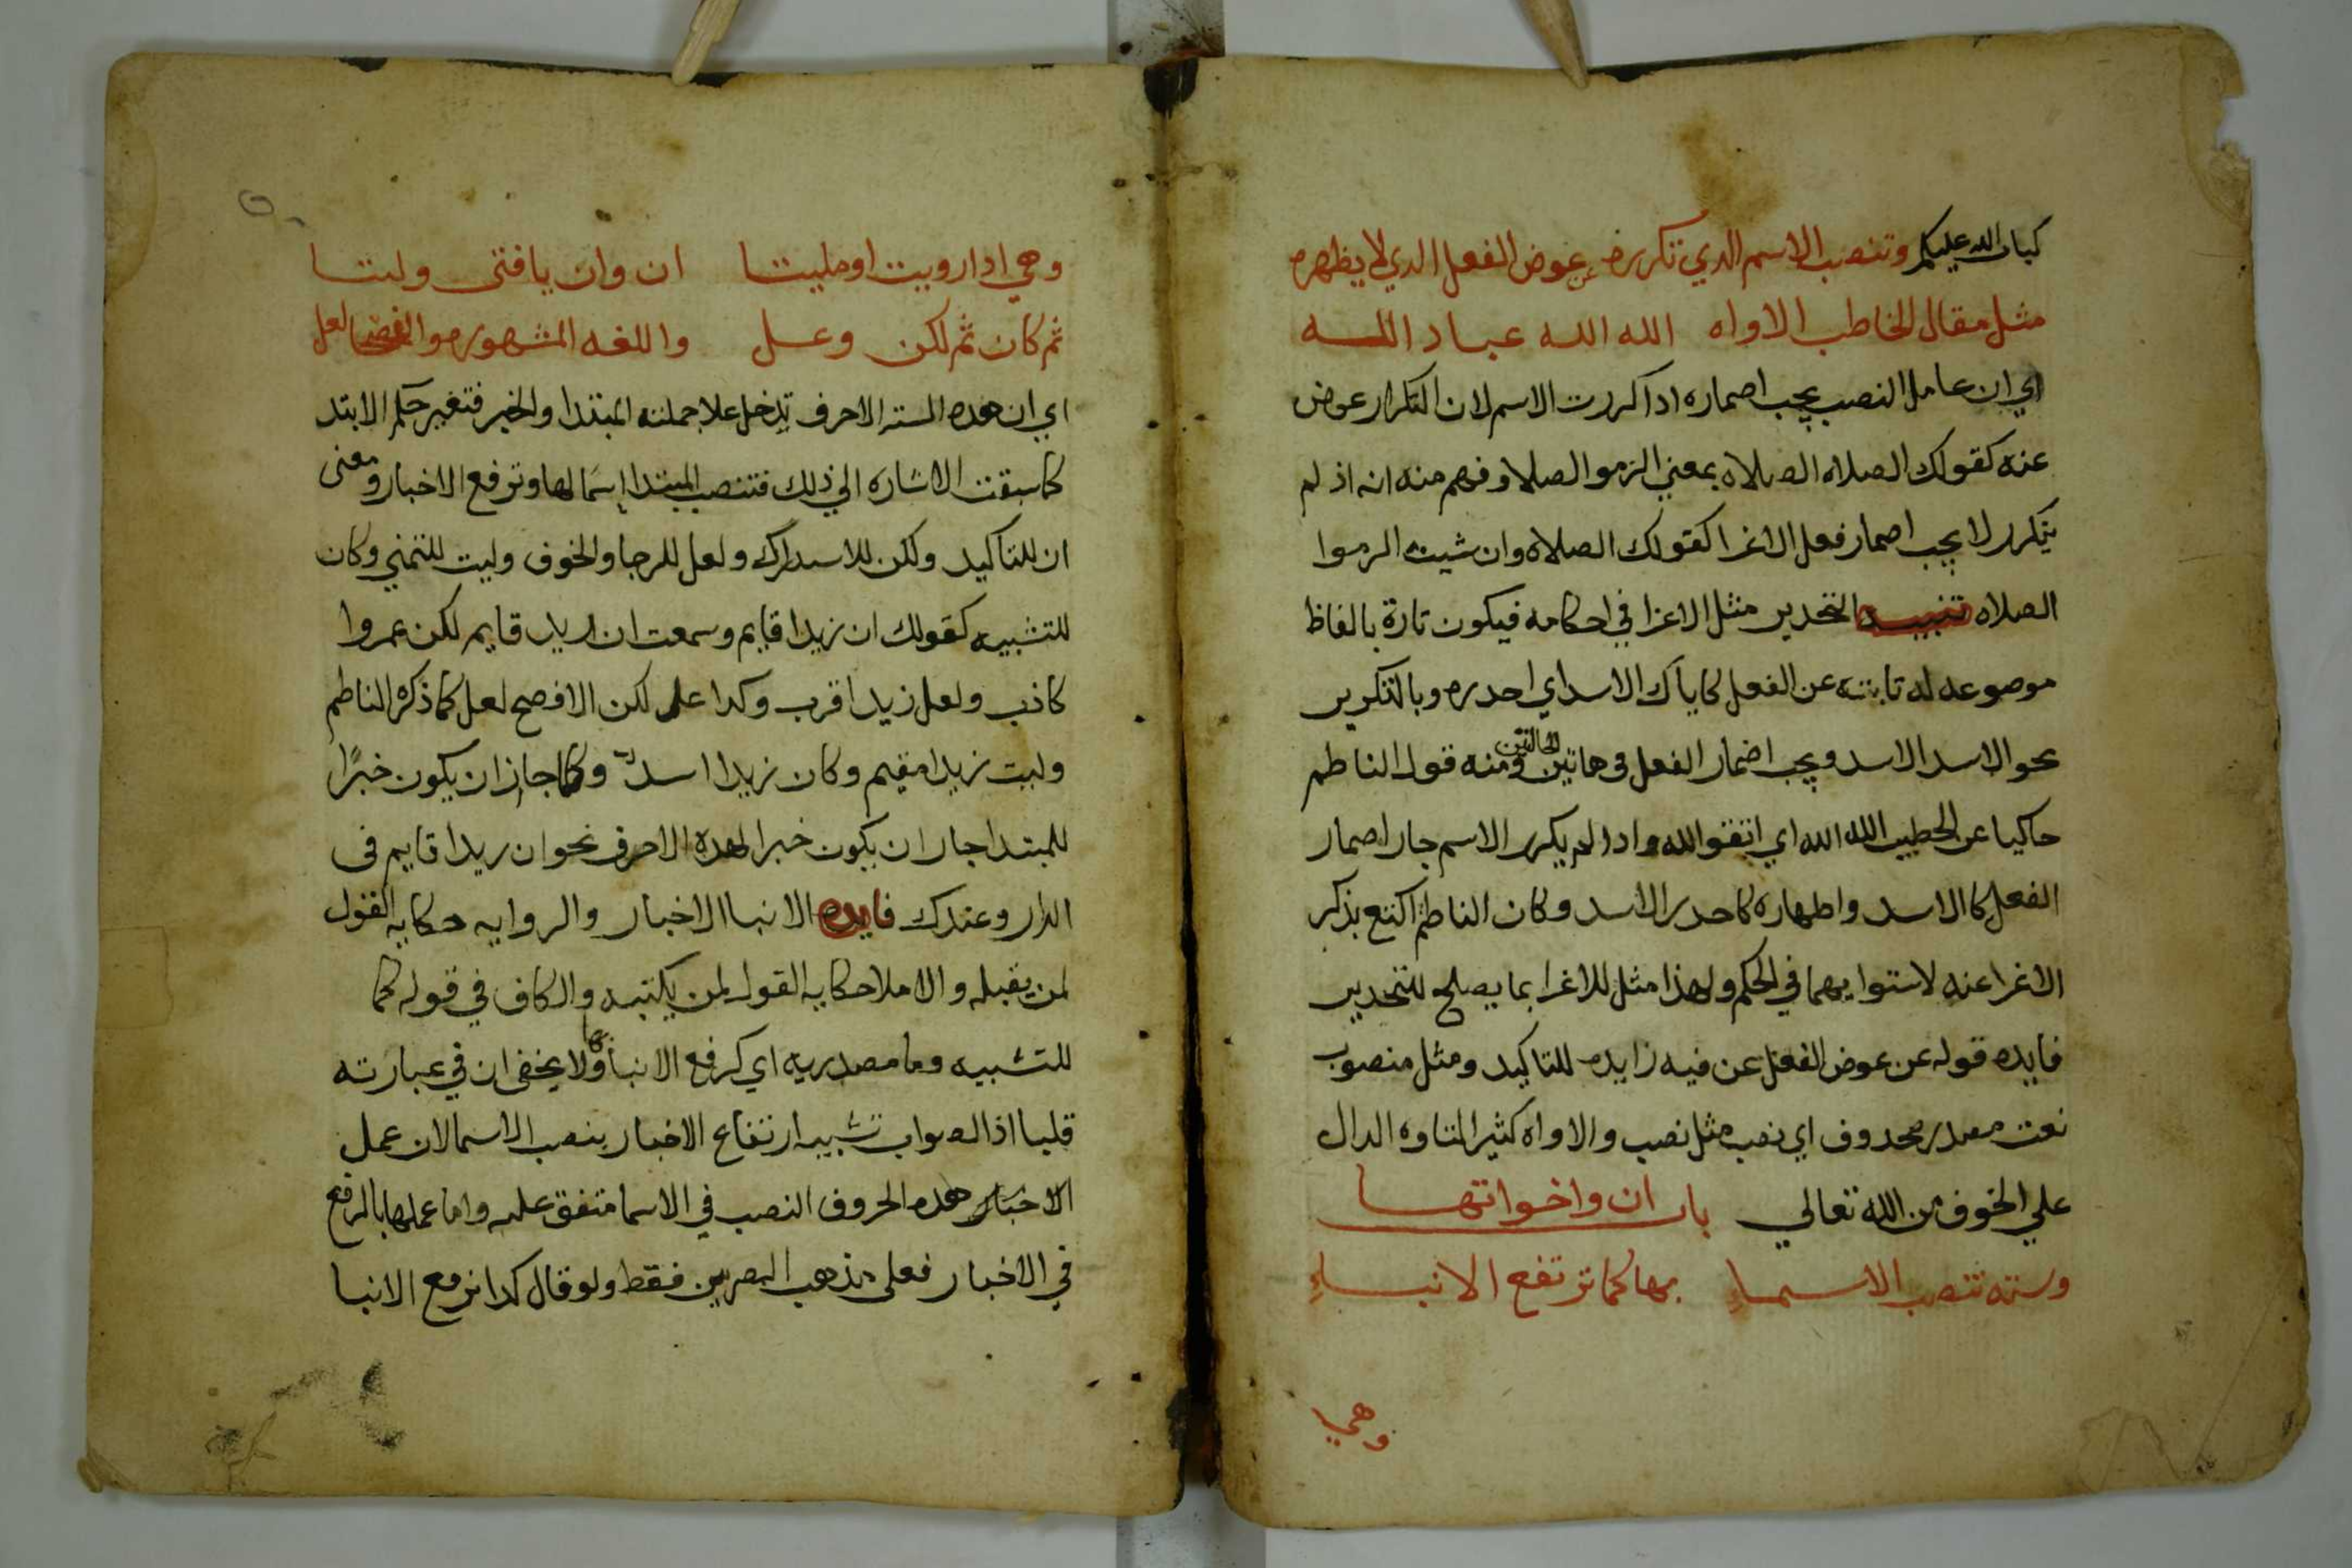 كتاب الله عليكم وتنصب الاسم الدي تكرره عن عوض الفعل الدي لا يظهره
مثل مقال الخاطب الاواه الله الله عباد الله
اي ان عامل النصب يجب اصماره ادا كررت الاسم لان التكرار عوض
عنه كقولك الصلاه الصلاه بمعني الزموا الصلاه وفهم منه انه اذ لم
يتكرر لا يجب اصمار فعل الاغرا كقولك الصلاه وان شيت الرموا
الصلاه تنبيه التحدير مثل الاغرا في احكامه فيكون تارة بالفاظ
موصوعه له نابته عن الفعل كاياك الاسد اي احدره وبالتكرير
نحو الاسد الاسد ويجب اضمار الفعل في هاتين الحالتين ومنه قول الناطم
حاكيا عن الخطيب الله الله اي اتقوا الله وادا لم يكرر الاسم جار اصمار
الفعل كالاسد واطهاره كاحدر الاسد وكان الناطم اكتفى بذكر
الاغرا عنه لاستوايهما في الحكم ولهذا مثل للاغرا بما يصلح للتحدير
فايده قوله عن عوض الفعل عن فيه زايده للتاكيد ومثل منصوب
نعت مصدر محدوف اي نصب مثل نصب والاواه كثير التاوه الدال
علي الخوف من الله تعالي باب ان واخواتها
وسته تنصب الاسماء بها كما ترتفع الانباء
وهي
وهي ادا رويت او مليتا ان وان يا فتى وليتا
ثم كان ثم لكن وعل واللغه المشهوره الفصحا لعل
اي ان هده السته الاحرف تدخل علا جملته المبتدا والخبر فتغير حكم الابتد
كما سبقت الاشاره الي ذلك فتنصب المبتدا اسما لها وترفع الاخبار ومعنى
ان للتاكيد ولكن للاسدراك ولعل للرجا والخوف وليت للتمني وكان
للتشبيه كقولك ان زيدا قايم وسمعت ان زيدا قايم لكن عمروا
كاذب ولعل زيدا قرب وكدا عل لكن الافصح لعل كما ذكره الناطم
وليت زيدا مقيم وكان زيدا اسد وكما جاز ان يكون خبرًا
للمبتدا جار ان يكون خبرا لهده الاحرف نحو ان ريدا قايم في
الدار وعندك فايده الانبا الاخبار والروايه حكايه القول
لمن يقبله والاملا حكايه القول لمن يكتبه والكاف في قوله كما
للتشبيه وما مصدريه اي كرفع الانبا بها ولا يخفى ان في عبارته
قلبا اذ الصواب تشبيه ارتفاع الاخبار بنصب الاسما لان عمل
الاخبار هده الحروف النصب في الاسما متفق عليه واما عملها بالرفع
في الاخبار فعلى مذهب البصريين فقط ولو قال كدا ترفع الانبا